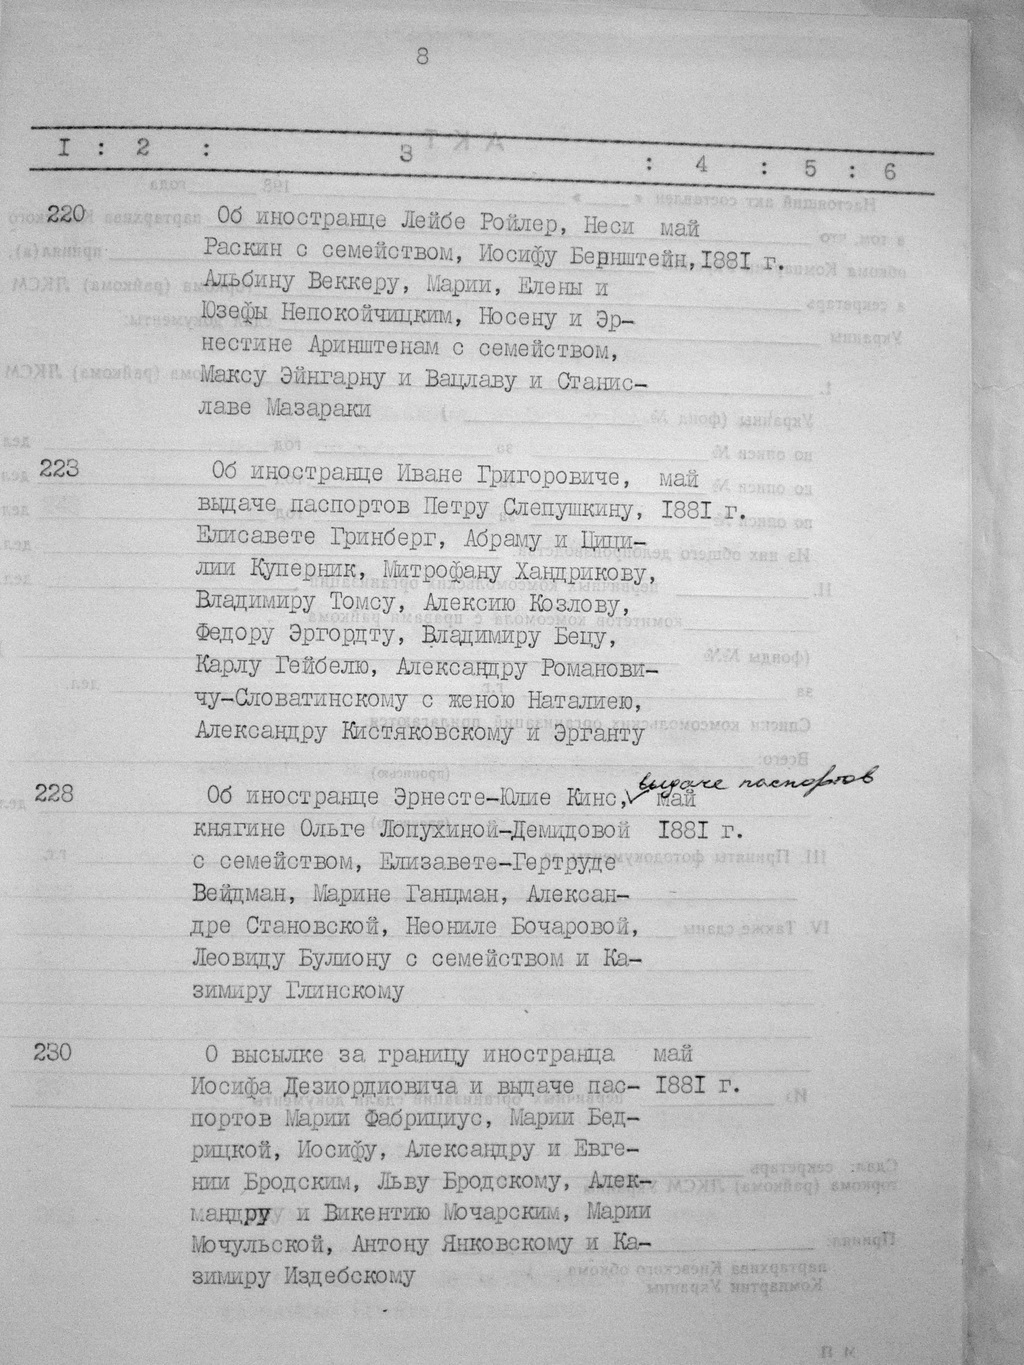 8
I : 2 : 3 : 4 : 5 : 6
220 Об иностранце Лейбе Ройлер, Неси май
Раскин с семейством, Иосифу Бернштейн, 1881 г.
Альбину Веккеру, Марии, Елены и
Юзефы Непокойчицким, Носену и Эр-
нестине Аринштенам с семейством,
Максу Эйнгарну и Вацлаву и Станис-
лаве Мазараки
223 Об иностранце Иване Григоровиче, май
выдаче паспортов Петру Слепушкину, 1881 г.
Елисавете Гринберг, Абраму и Цици-
лии Куперник, Митрофану Хандрикову,
Владимиру Томсу, Алексию Козлову,
Федору Эргордту, Владимиру Бецу,
Карлу Гейбелю, Александру Романови-
чу-Словатинскому с женою Наталиею,
Александру Кистяковскому и Эрганту
выдаче паспортов
228 Об иностранце Эрнесте-Юлие Кинс, май
княгине Ольге Лопухиной-Демидовой 1881 г.
с семейством, Елизавете-Гертруде
Вейдман, Марине Ганцман, Алексан-
дре Становской, Неониле Бочаровой,
Леовиду Булиону с семейством и Ка-
зимиру Глинскому
230 О высылке за границу иностранца май
Иосифа Дезиордиовича и выдаче пас- 1881 г.
портов Марии Фабрициус, Марии Бед-
рицкой, Иосифу, Александру и Евге-
нии Бродским, Льву Бродскому, Алек-
мандру и Викентию Мочарским, Марии
Мочульской, Антону Янковскому и Ка-
зимиру Издебскому